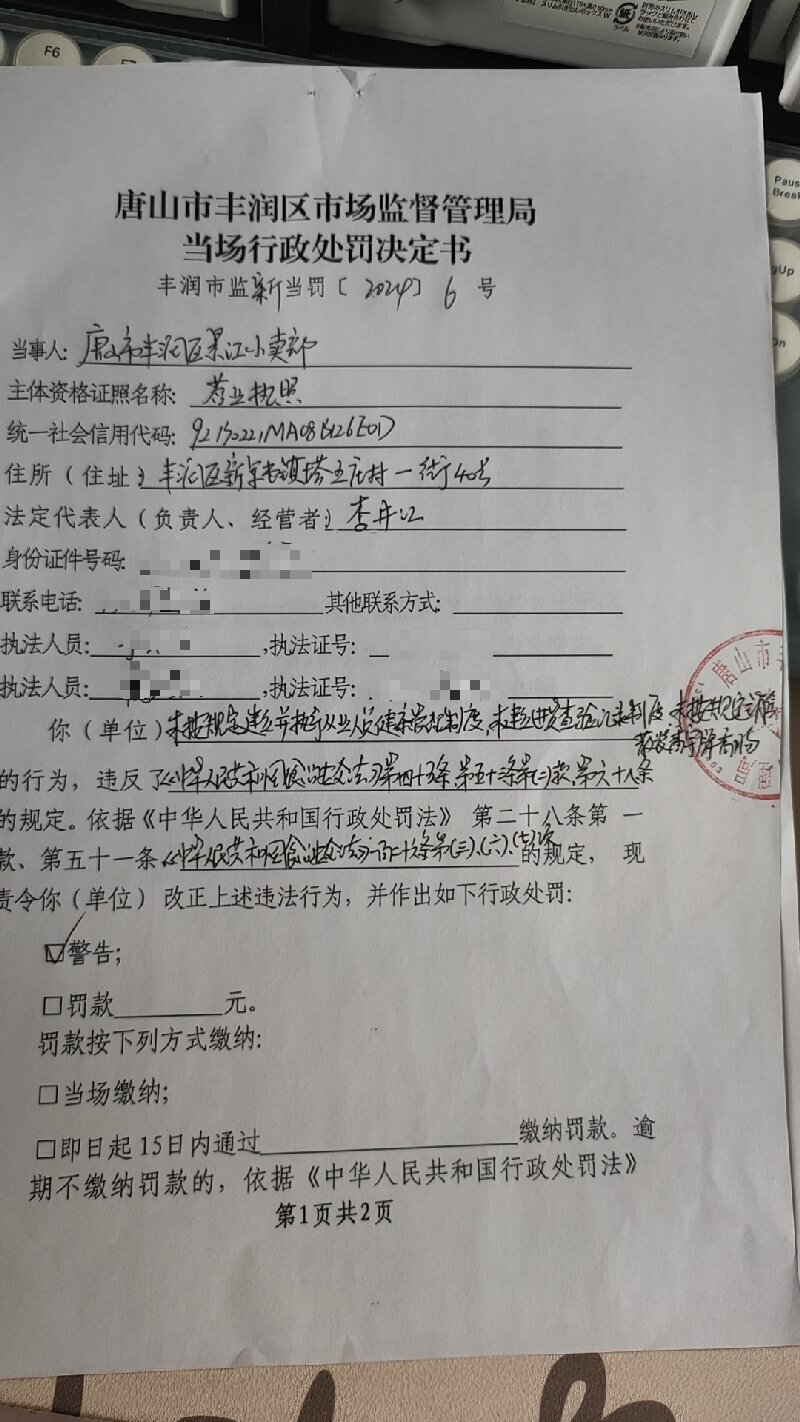 F6
F7
Pause
Break
PgUp
唐山市丰润区市场监督管理局
当场行政处罚决定书
丰润市监新当罚〔2024〕6号
当事人：唐山市丰润区景江小卖部
主体资格证照名称：营业执照
统一社会信用代码：
住所（住址）丰润区新军屯镇塔王庄村一街40号
法定代表人（负责人、经营者）李井江
身份证件号码：
联系电话： 其他联系方式：
执法人员： ，执法证号：
执法人员： ，执法证号：
你（单位）未按规定建立并执行从业人员健康管理制度，未建立进货查验记录制度，未按规定
的行为，违反了《中华人民共和国食品安全法》第四十五条、第五十三条第(二)款、第六十八条
的规定。依据《中华人民共和国行政处罚法》第二十八条第一
款、第五十一条《中华人民共和国食品安全法》一百二十六条第(三)、(六)、(七)项的规定，现
责令你（单位）改正上述违法行为，并作出如下行政处罚：
☑警告；
□罚款 元。
罚款按下列方式缴纳：
□当场缴纳；
□即日起15日内通过 缴纳罚款。逾
期不缴纳罚款的，依据《中华人民共和国行政处罚法》
第1页共2页
唐山市丰